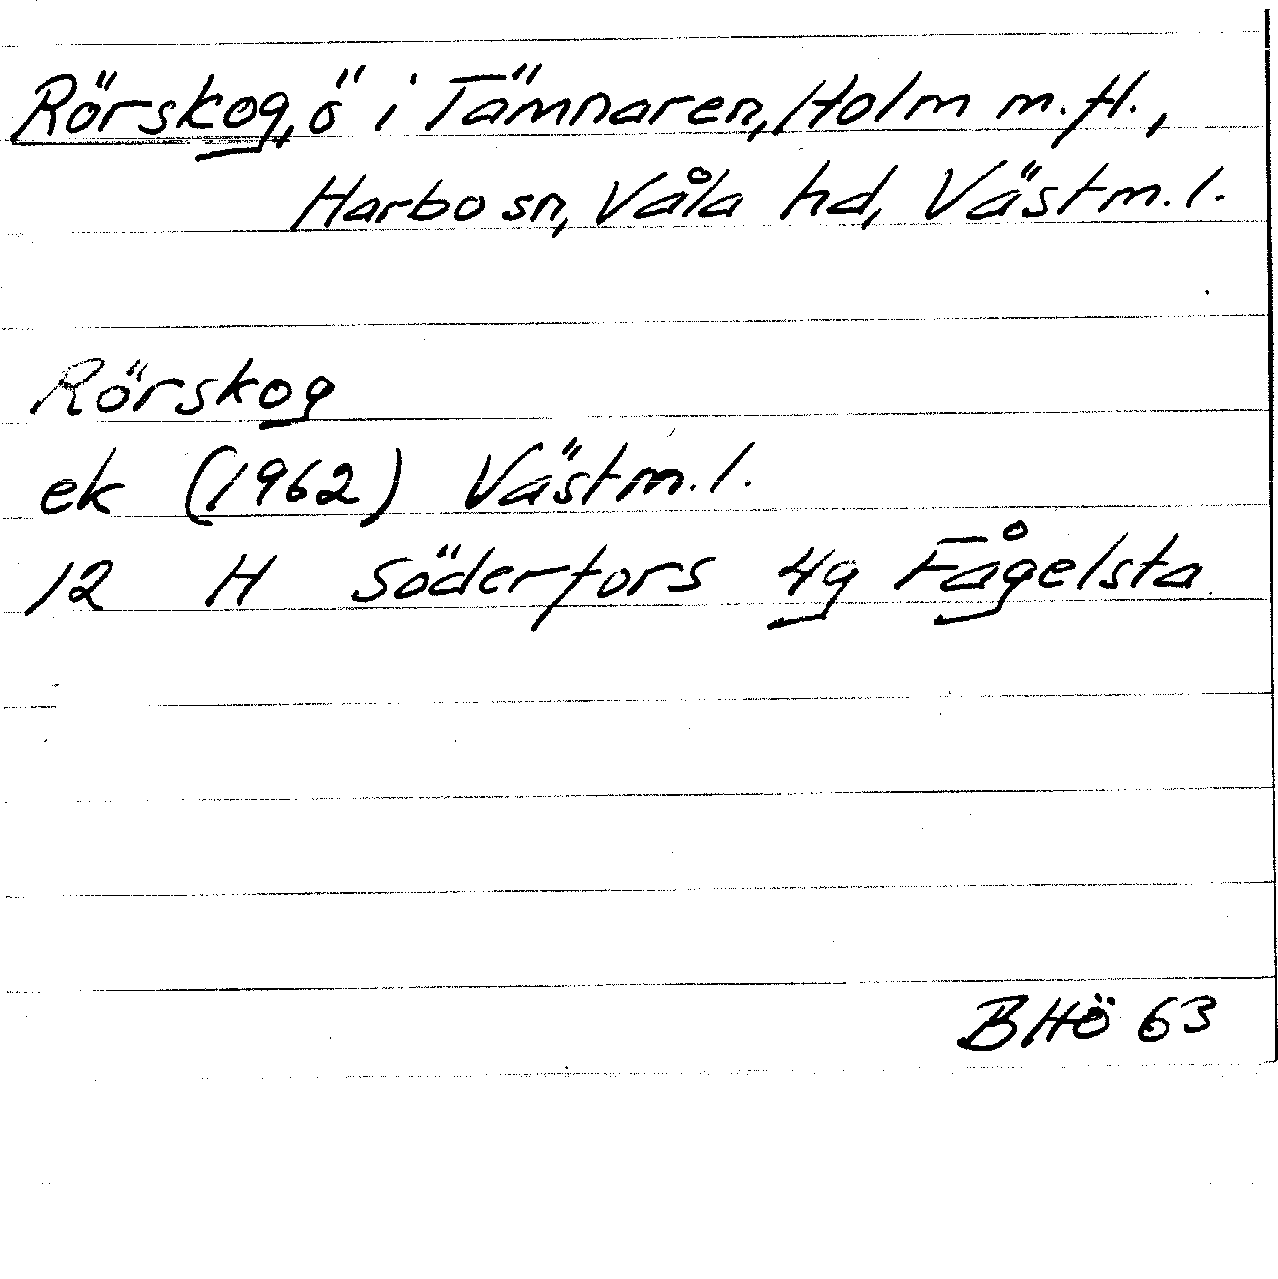 Rörskog, ö i Tämnaren, Holm m.fl.,
Harbo sn, Våla hd, Västm.l.
Rörskog
ek (1962) Västm.l.
12 H Söderfors 4g Fågelsta
BHö 63